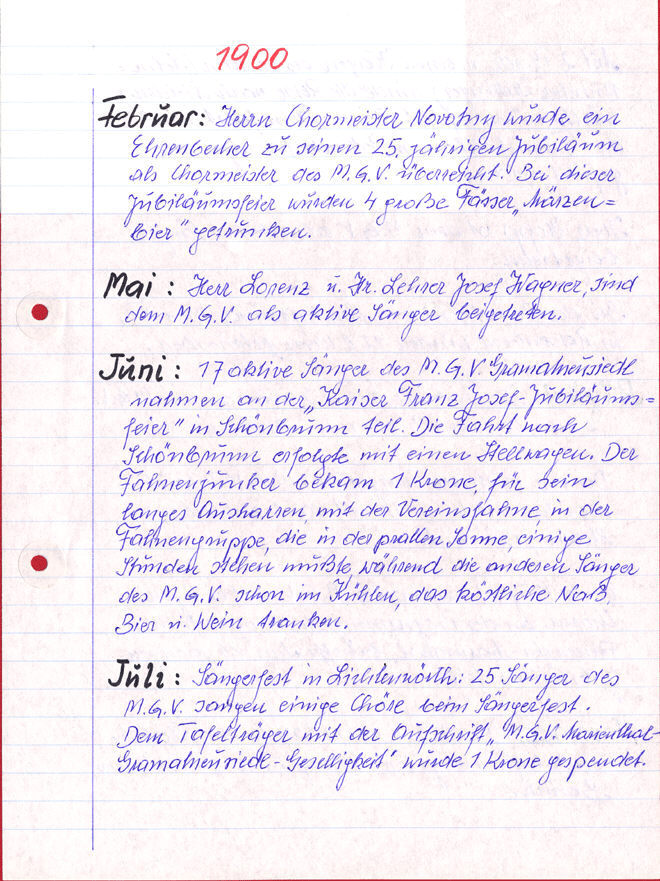 1900
Februar: Herrn Chormeister Novotny wurde ein
Ehrenbecher zu seinen 25. jährigen Jubiläum
als Chormeister des M.G.V. überreicht. Bei dieser
Jubiläumsfeier wurden 4 große Fässer „Märzen=
bier" getrunken.
Mai: Herr Lorenz u. Hr. Lehrer Josef Wagner, sind
dem M.G.V. als aktive Sänger beigetreten.
Juni: 17 aktive Sänger des M.G.V. Gramatneusiedl
nahmen an der „Kaiser Franz Josef-Jubiläums=
feier" in Schönbrunn teil. Die Fahrt nach
Schönbrunn erfolgte mit einen Stellwagen. Der
Fahnenjunker bekam 1 Krone, für sein
langes Ausharren, mit der Vereinsfahne, in der
Fahnengruppe, die in der prallen Sonne, einige
Stunden stehen mußte während die anderen Sänger
des M.G.V. schon im Kühlen, das köstliche Naß,
Bier u. Wein tranken.
Juli: Sängerfest in Lichtenwörth: 25 Sänger des
M.G.V. sangen einige Chöre beim Sängerfest.
Dem Tafelträger mit der Aufschrift „M.G.V. Marienthal-
Gramatneusiedl-Geselligkeit" wurde 1 Krone gespendet.